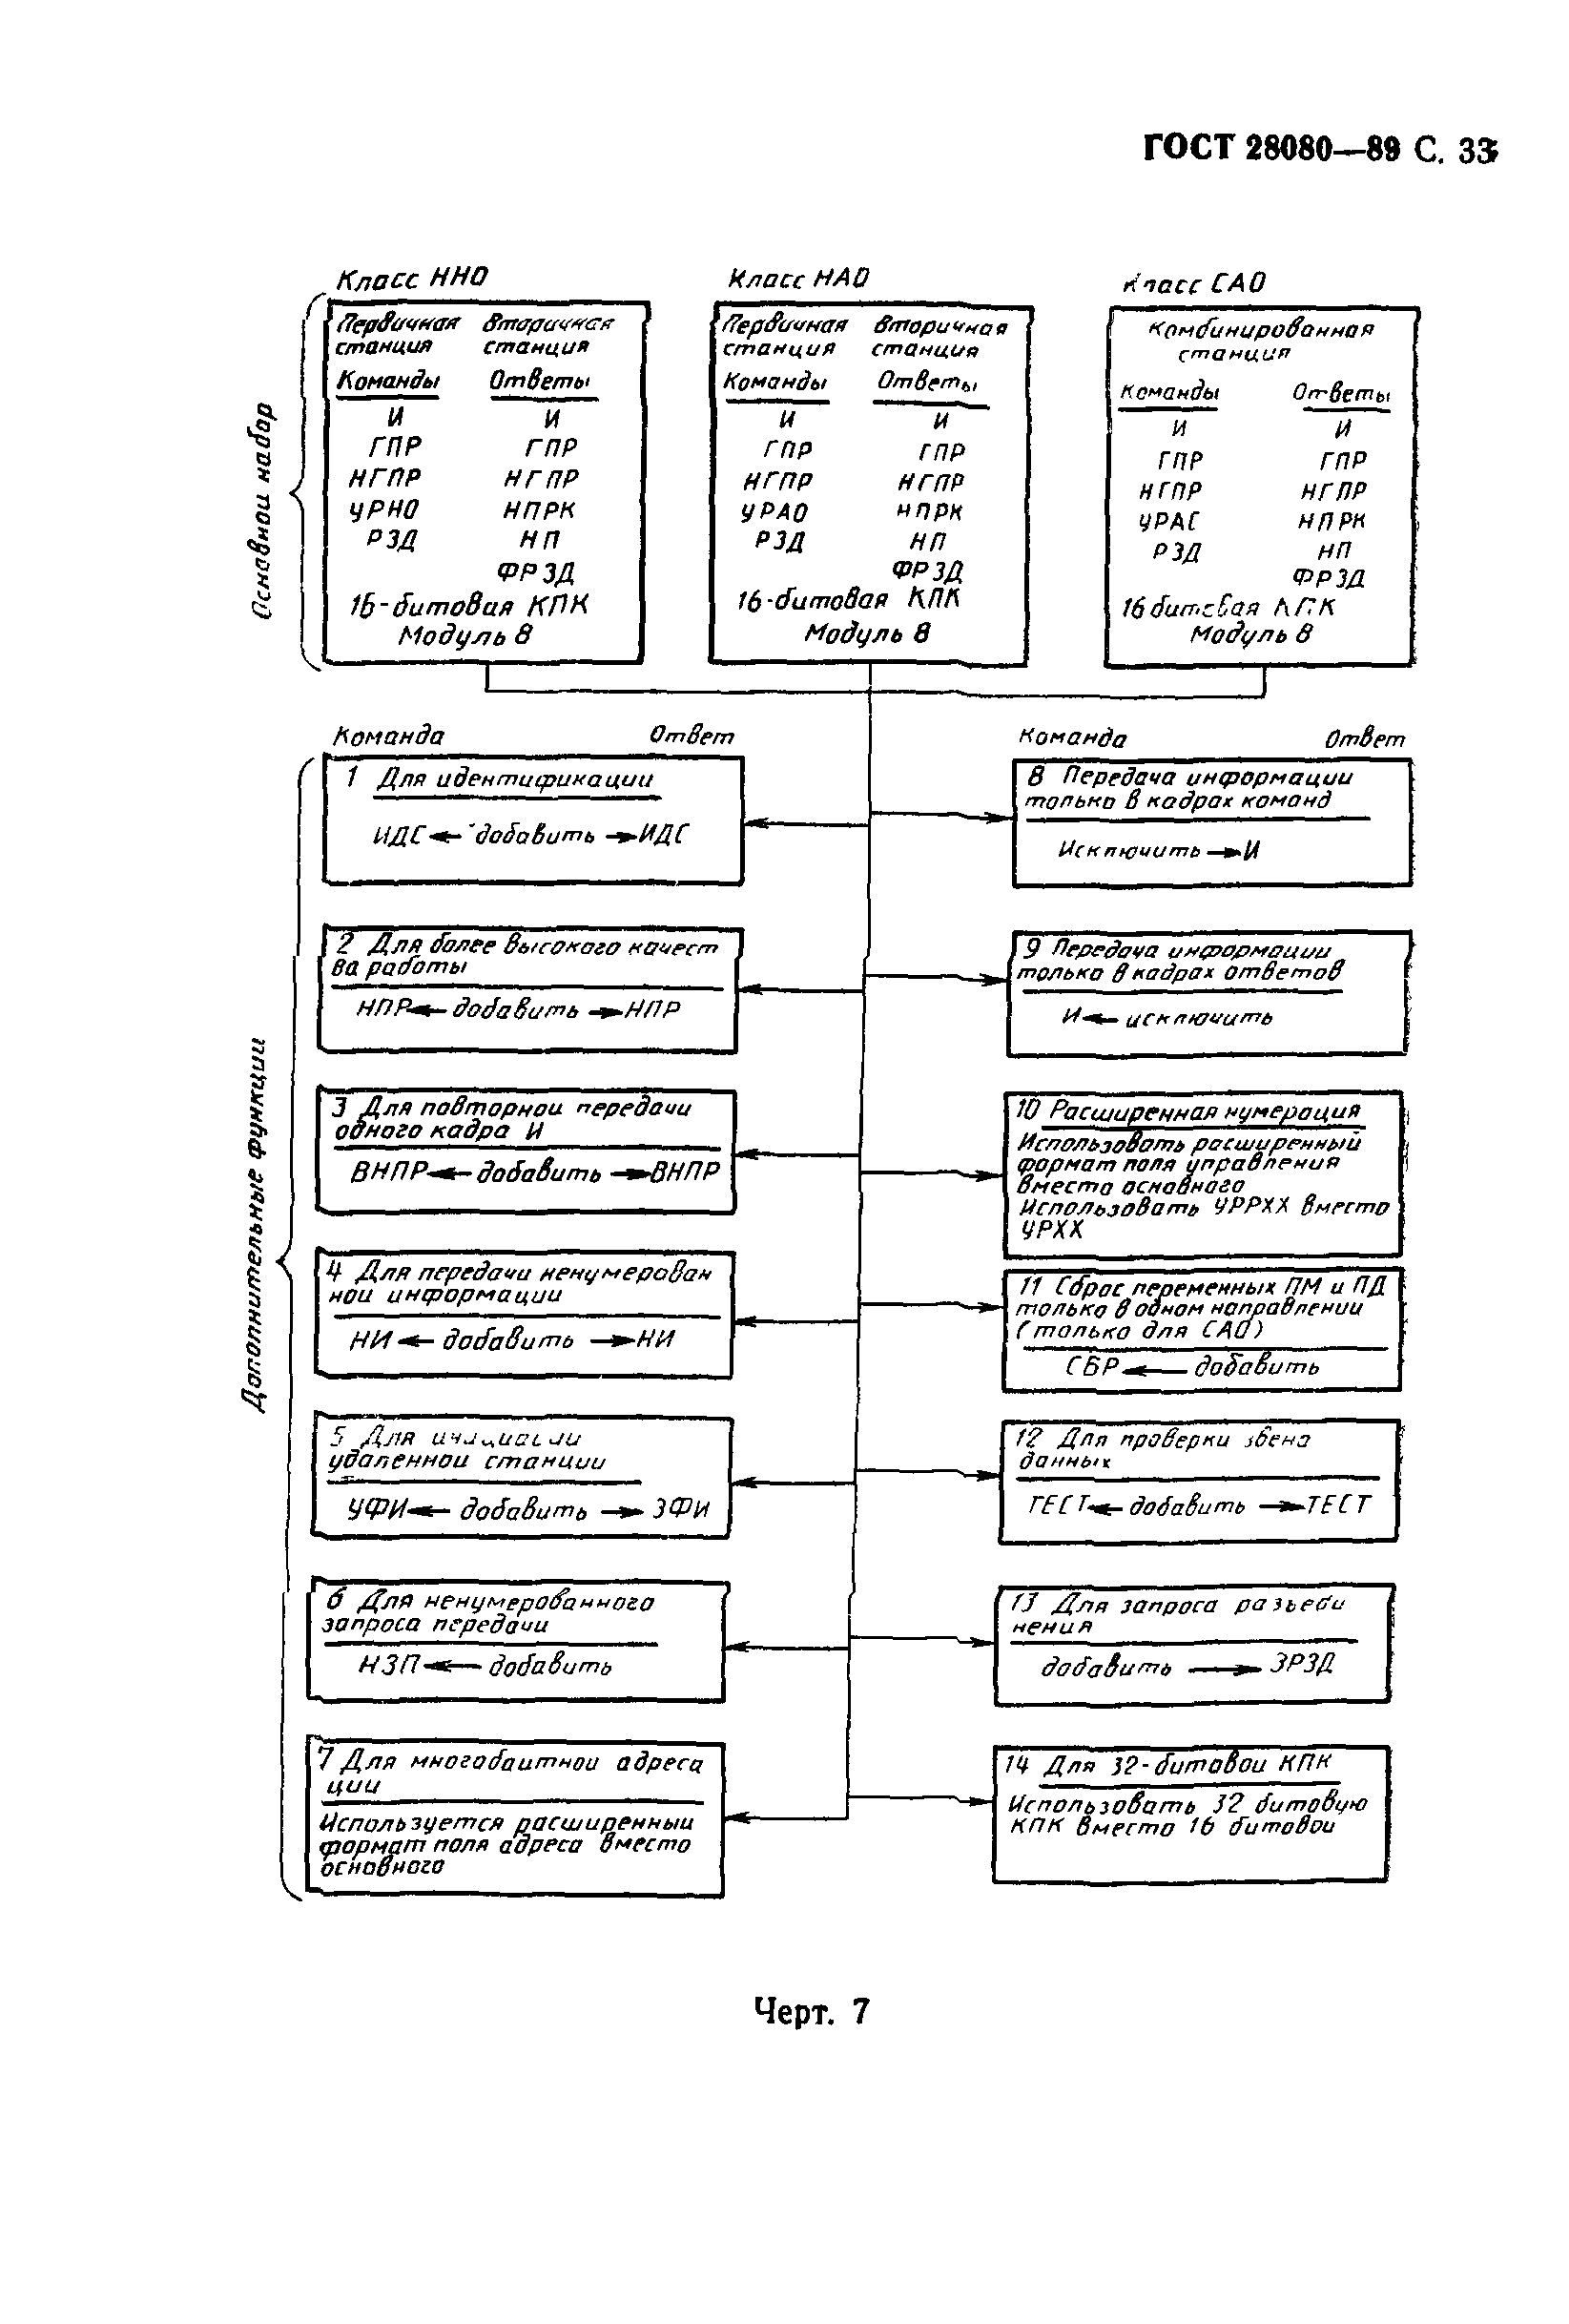 ГОСТ 28080—89 С. 33
Основной набор
Класс ННО
Первичная станция
Вторичная станция
Команды Ответы
И И
ГПР ГПР
НГПР НГПР
УРНО НПРК
РЗД НП
ФРЗД
16-битовая КПК
Модуль 8
Класс НАО
Первичная станция
Вторичная станция
Команды Ответы
И И
ГПР ГПР
НГПР НГПР
УРАО НПРК
РЗД НП
ФРЗД
16-битовая КПК
Модуль 8
Класс САО
Комбинированная
станция
Команды Ответы
И И
ГПР ГПР
НГПР НГПР
УРАС НПРК
РЗД НП
ФРЗД
16 битовая КПК
Модуль 8
Дополнительные функции
Команда Ответ
1 Для идентификации
ИДС ← добавить → ИДС
2 Для более высокого качест
ва работы
НПР ← добавить → НПР
3 Для повторной передачи
одного кадра И
ВНПР ← добавить → ВНПР
4 Для передачи ненумерован
ной информации
НИ ← добавить → НИ
5 Для
удаленной станции
УФИ ← добавить → ЗФИ
6 Для ненумерованного
запроса передачи
НЗП ← добавить
7 Для многобайтной адреса
ции
Используется расширенный
формат поля адреса вместо
основного
Команда Ответ
8 Передача информации
только в кадрах команд
Исключить → И
9 Передача информации
только в кадрах ответов
И ← исключить
10 Расширенная нумерация
Использовать расширенный
формат поля управления
вместо основного
Использовать УРРХХ вместо
УРХХ
11 Сброс переменных ПМ и ПД
только в одном направлении
(только для САО)
СБР ← добавить
12 Для проверки звена
данных
ТЕСТ ← добавить → ТЕСТ
13 Для запроса разъеди
нения
добавить → ЗРЗД
14 Для 32-битовой КПК
Использовать 32 битовую
КПК вместо 16 битовой
Черт. 7